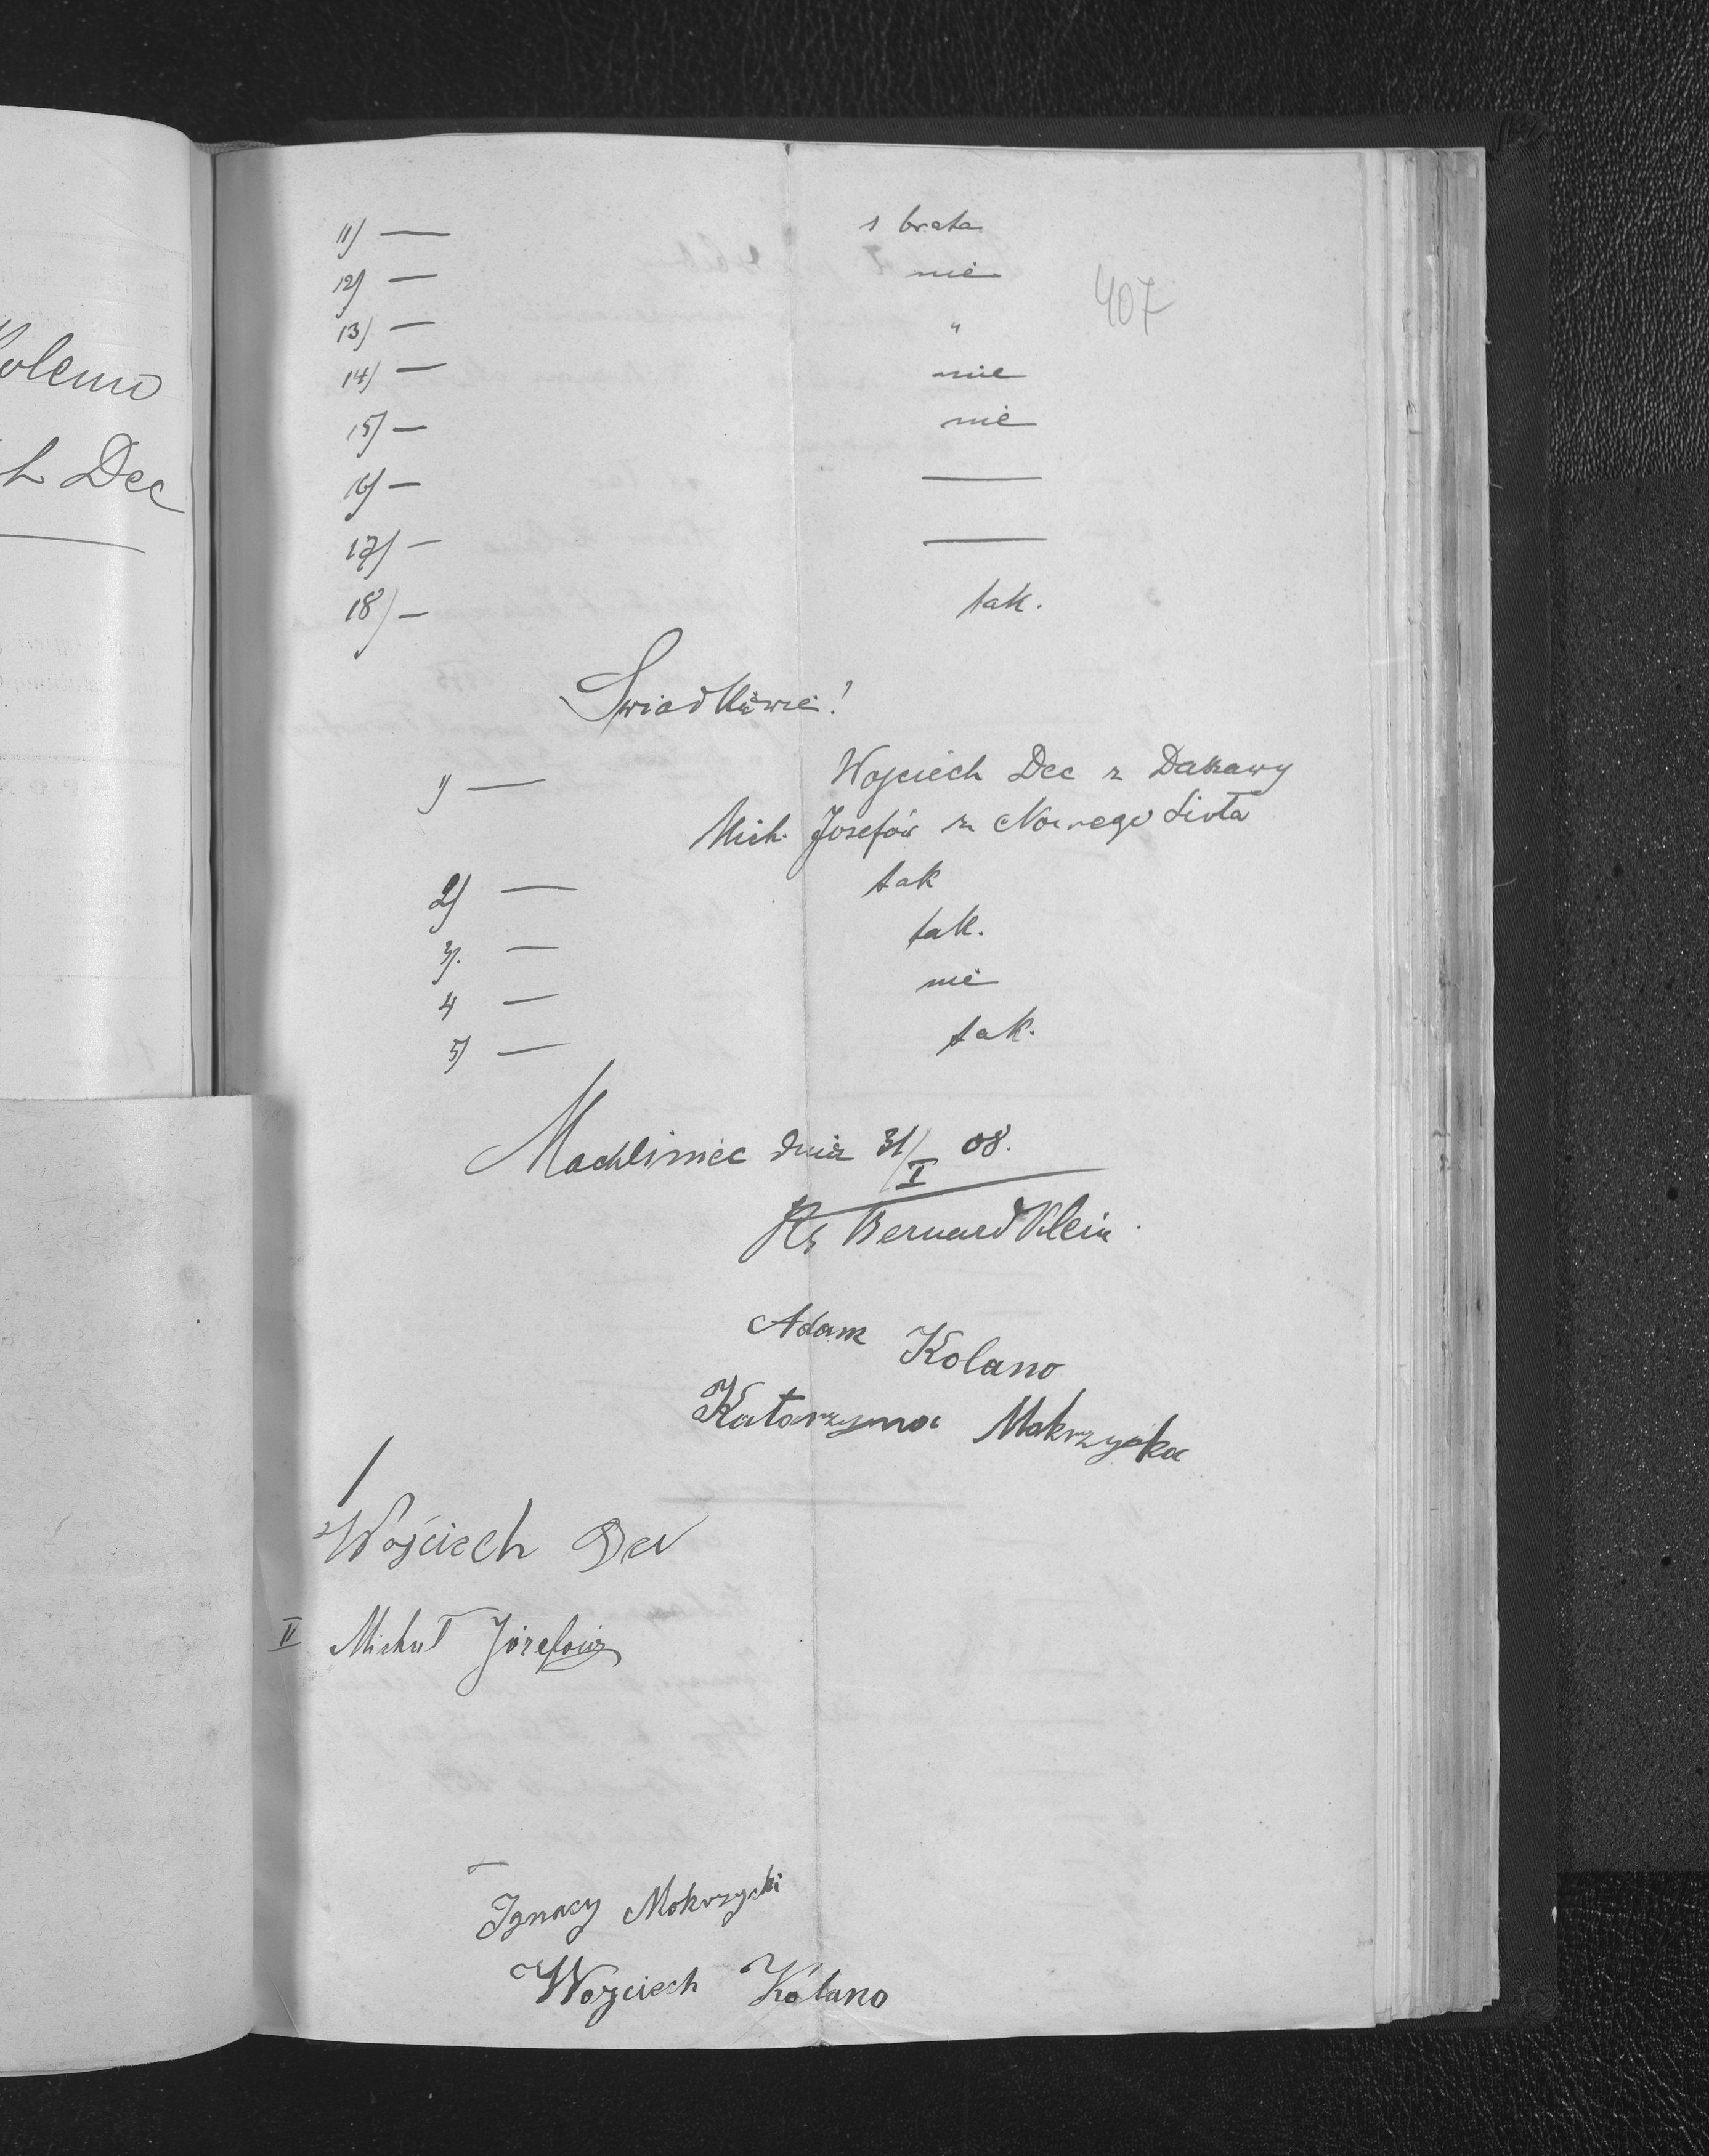 olemo
h Dec
11) — 1 brata
12) — nie
407
13) — "
14) — nie
15) — nie
16) — —
17) — —
18) — tak.
Swiadkowie!
1) — Wojciech Dec z Daszawy
Mich. Josefów z Nowego Sioła
2) — tak
3). — tak.
4 — nie
5) — tak.
Machliniec dnia 31/I 08.
Ks Bernard Klein
Adam Kolano
Katarzyna Mokrzycka
I
Wojciech Dec
II Michał Józefów
Ignacy Mokrzycki
Wojciech Kolano